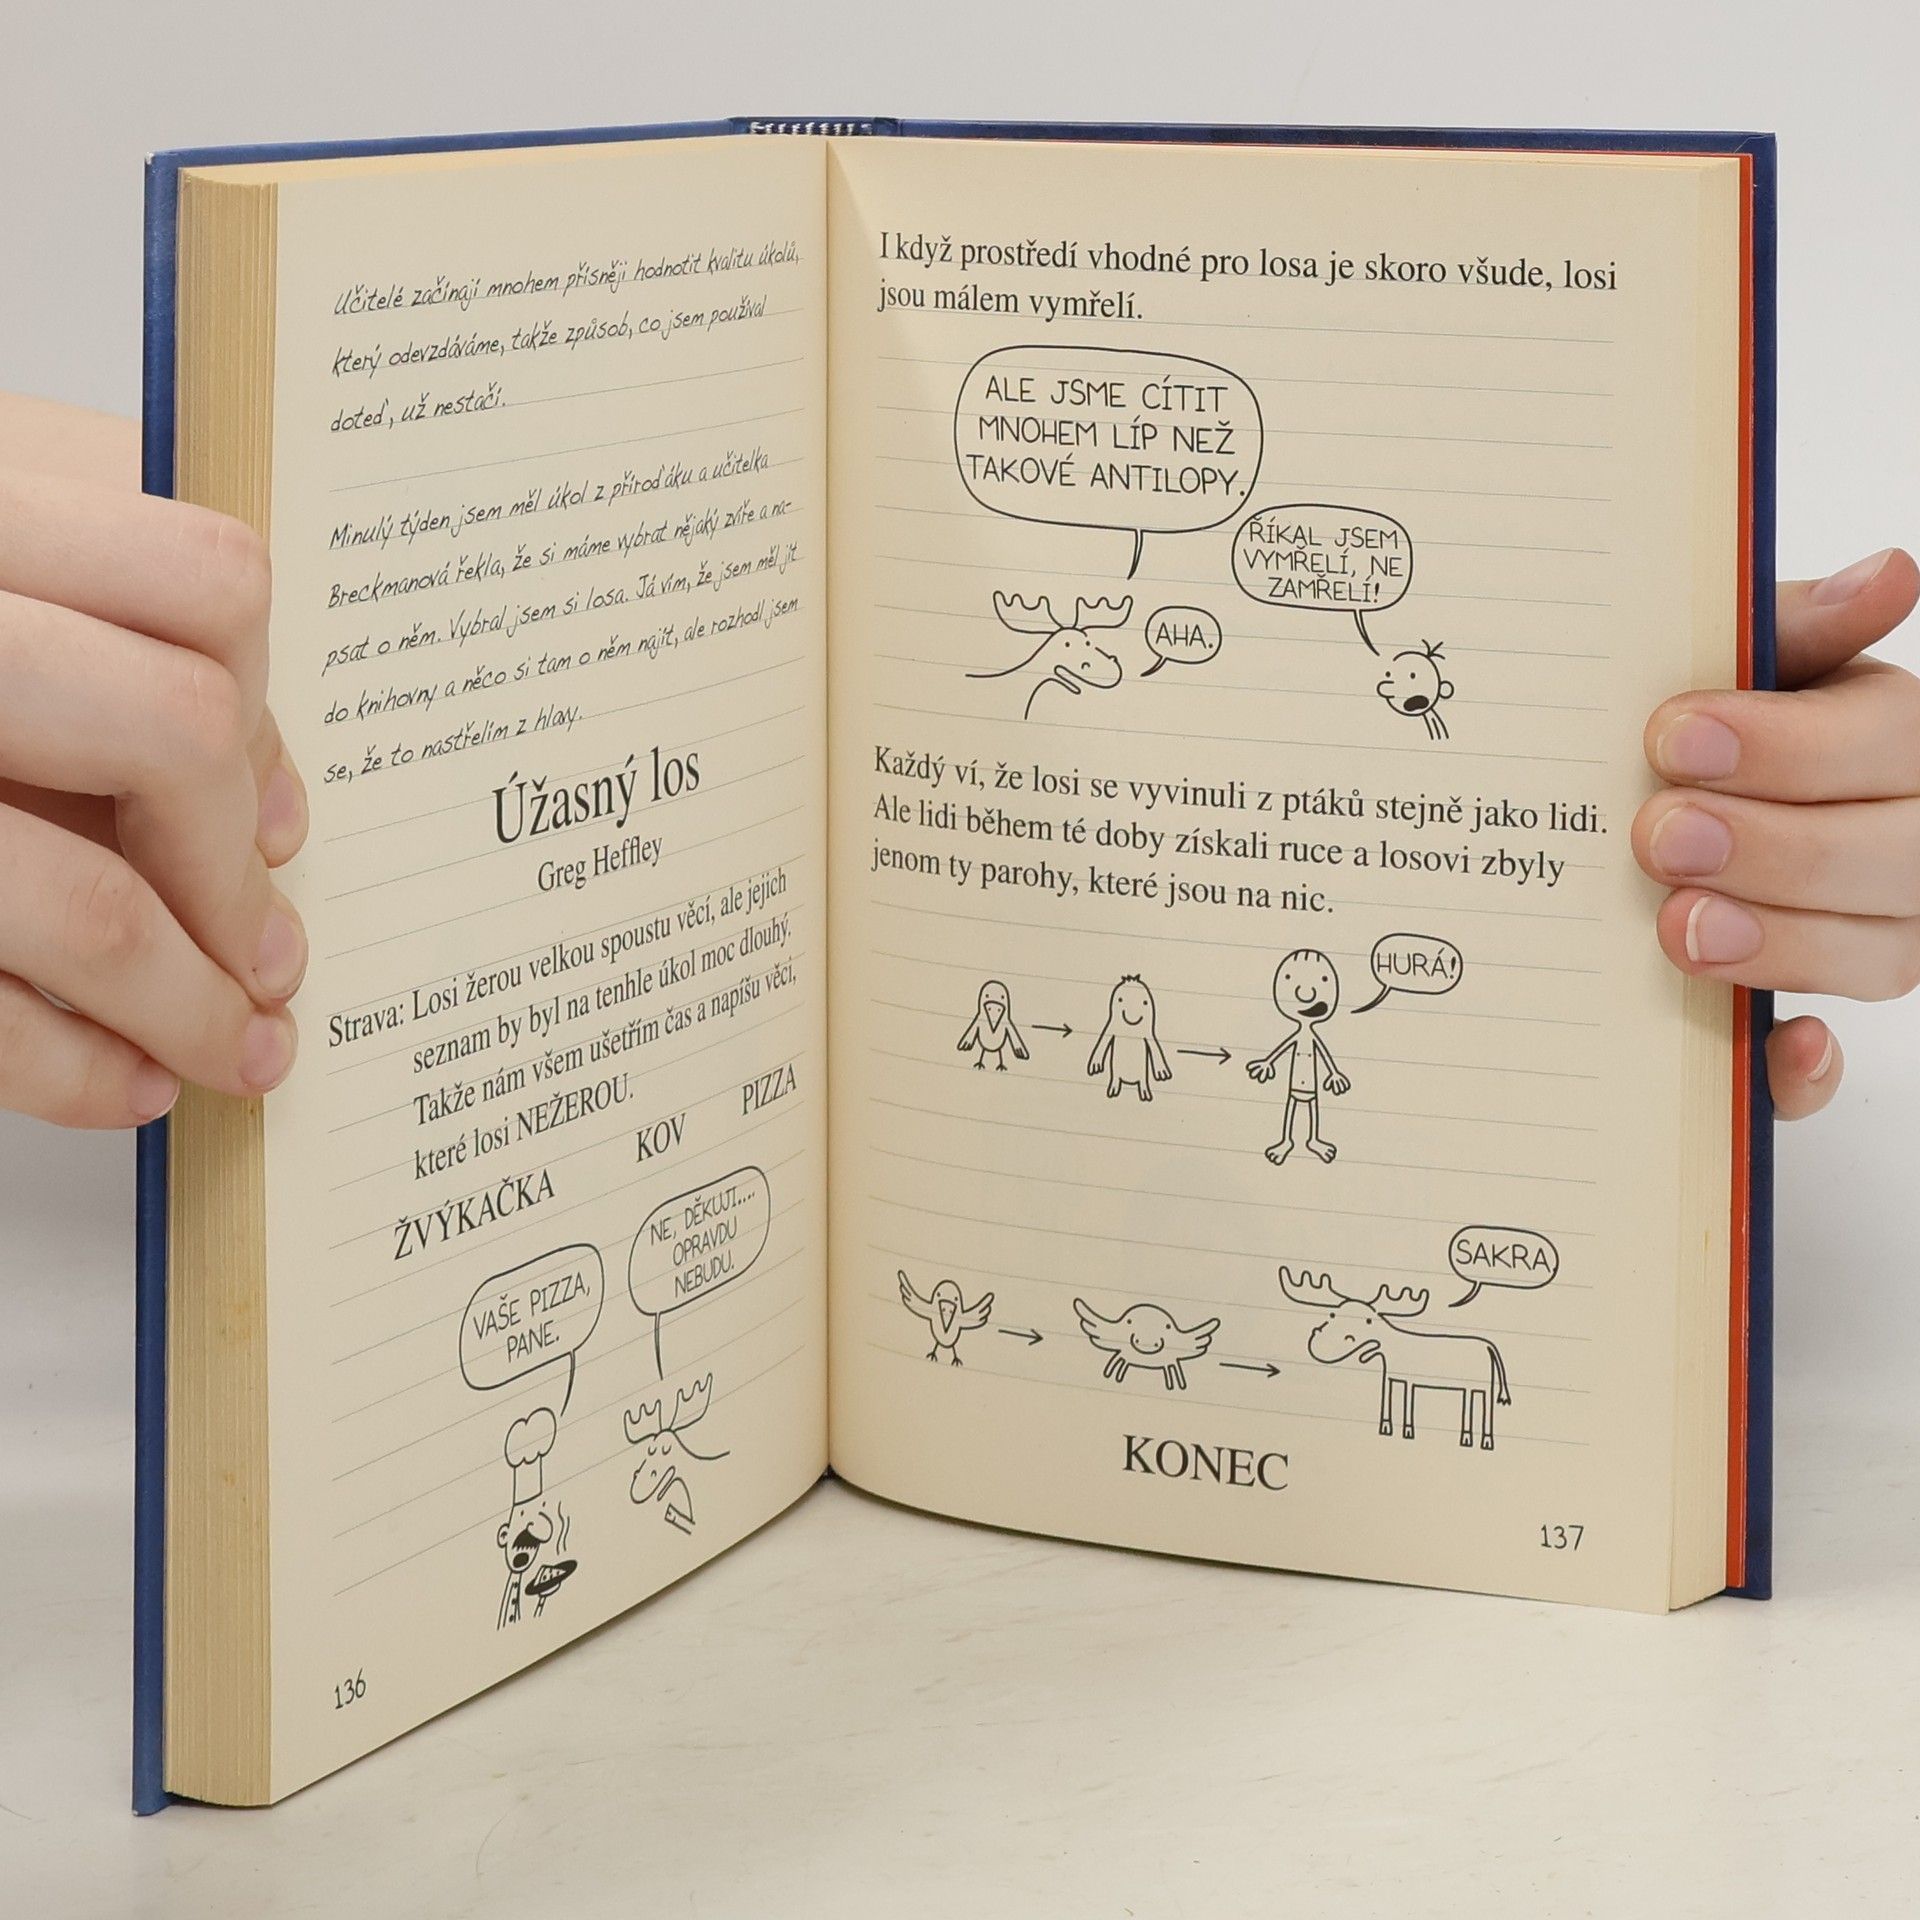 Učitelé začínají mnohem přísněji hodnotit kvalitu úkolů,
který odevzdáváme, takže způsob, co jsem používal
doteď, už nestačí.
Minulý týden jsem měl úkol z příroďáku a učitelka
Breckmanová řekla, že si máme vybrat nějaký zvíře a na-
psat o něm. Vybral jsem si losa. Já vím, že jsem měl jít
do knihovny a něco si tam o něm najít, ale rozhodl jsem
se, že to nastřelím z hlavy.
Úžasný los
Greg Heffley
Strava: Losi žerou velkou spoustu věcí, ale jejich
seznam by byl na tenhle úkol moc dlouhý.
Takže nám všem ušetřím čas a napíšu věci,
které losi NEŽEROU.
ŽVÝKAČKA KOV PIZZA
VAŠE PIZZA,
PANE.
NE, DĚKUJI....
OPRAVDU
NEBUDU.
136
I když prostředí vhodné pro losa je skoro všude, losi
jsou málem vymřelí.
ALE JSME CÍTIT
MNOHEM LÍP NEŽ
TAKOVÉ ANTILOPY.
ŘÍKAL JSEM
VYMŘELÍ, NE
ZAMŘELÍ!
AHA.
Každý ví, že losi se vyvinuli z ptáků stejně jako lidi.
Ale lidi během té doby získali ruce a losovi zbyly
jenom ty parohy, které jsou na nic.
HURÁ!
SAKRA.
KONEC
137